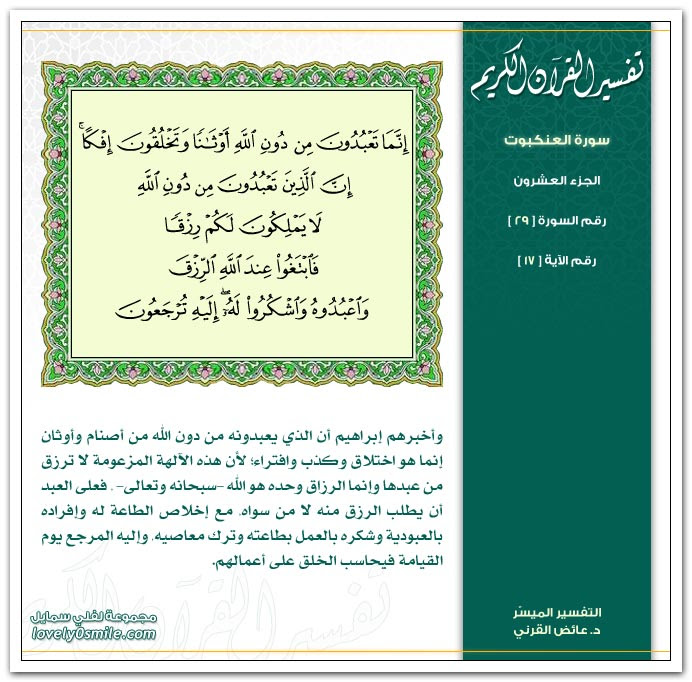 تفسير القرآن الكريم
سورة العنكبوت
الجزء العشرون
رقم السورة [ ٢٩ ]
رقم الآية [ ١٧ ]
إِنَّمَا تَعْبُدُونَ مِن دُونِ ٱللَّهِ أَوْثَـٰنًا وَتَخْلُقُونَ إِفْكًا ۚ
إِنَّ ٱلَّذِينَ تَعْبُدُونَ مِن دُونِ ٱللَّهِ
لَا يَمْلِكُونَ لَكُمْ رِزْقًا
فَٱبْتَغُوا۟ عِندَ ٱللَّهِ ٱلرِّزْقَ
وَٱعْبُدُوهُ وَٱشْكُرُوا۟ لَهُۥٓ ۖ إِلَيْهِ تُرْجَعُونَ
وأخبرهم إبراهيم أن الذي يعبدونه من دون الله من أصنام وأوثان
إنما هو اختلاق وكذب وافتراء؛ لأن هذه الآلهة المزعومة لا ترزق
من عبدها وإنما الرزاق وحده هو الله -سبحانه وتعالى- . فعلى العبد
أن يطلب الرزق منه لا من سواه. مع إخلاص الطاعة له وإفراده
بالعبودية وشكره بالعمل بطاعته وترك معاصيه. وإليه المرجع يوم
القيامة فيحاسب الخلق على أعمالهم.
مجموعة لفلي سمايل
lovely0smile.com
التفسير الميسّر
د. عائض القرني